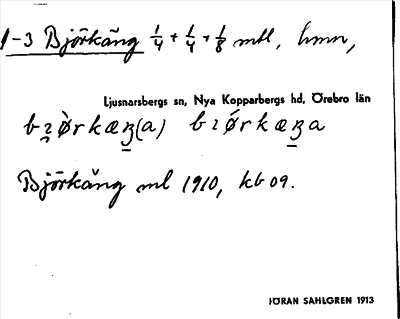 1-3 Björkäng 1/4 + 1/4 + 1/8 mtl, hmn,
Ljusnarsbergs sn, Nya Kopparbergs hd, Örebro län
Björkäng ml 1910, kb 09.
JÖRAN SAHLGREN 1913